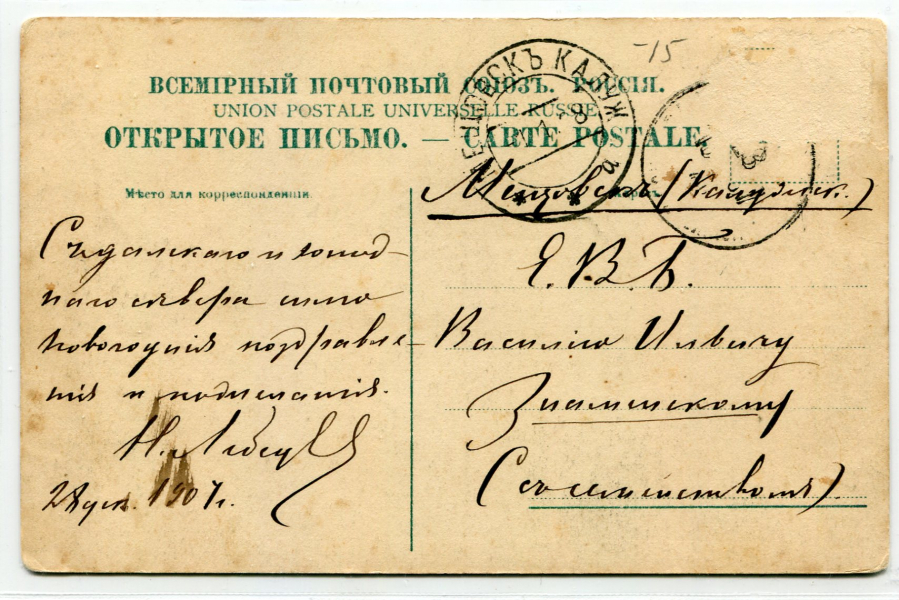 -15
ВСЕМІРНЫЙ ПОЧТОВЫЙ СОЮЗЪ. РОССІЯ.
UNION POSTALE UNIVERSELLE. RUSSIE.
ОТКРЫТОЕ ПИСЬМО. — CARTE POSTALE.
МЕЩОВСКЪ КАЛУЖ
Мѣсто для корреспонденціи.
Съ далекаго и холод-
наго сѣвера шлю
новогоднія поздравле-
нія и пожеланія.
28 дек. 1907 г.
Мещовскъ (Калужск.)
Е. В. Б.
Василію Ильичу
Знаменскому
(съ семействомъ).
3